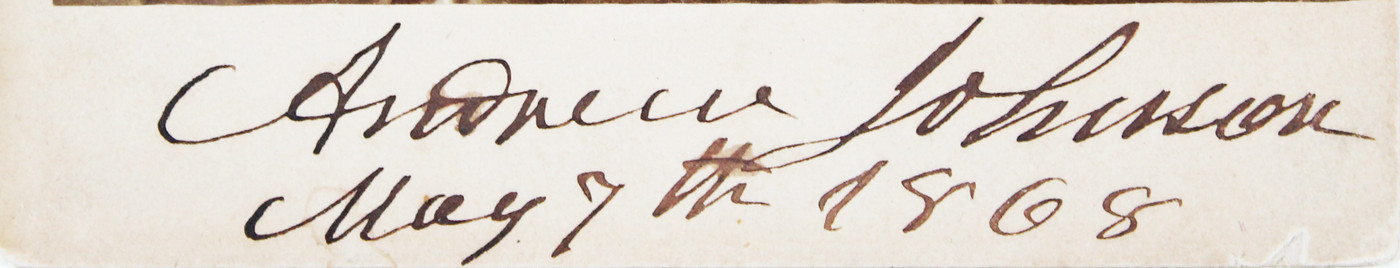 Andrew Johnson
May 7th 1868